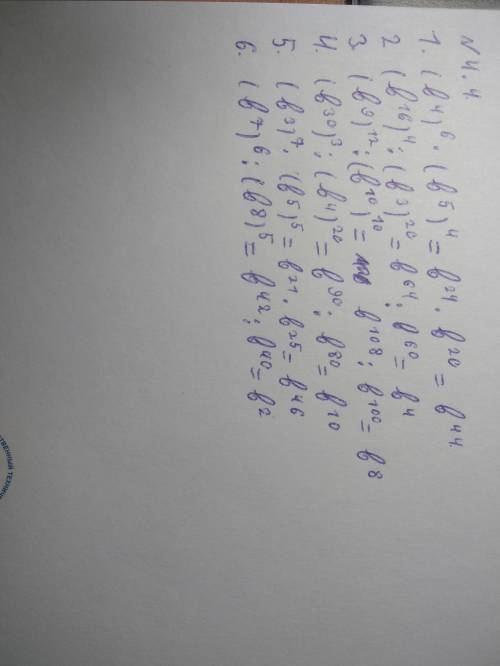 N 4.4
1. (b4)6 . (b5)4 = b24 . b20 = b44
2 (b16)4 ; (b3)20 = b64 ; b60 = b4
3 (b9)12 ; (b10)10 = b108 ; b100 = b8
4. (b30)3 ; (b4)20 = b90 ; b80 = b10
5. (b3)7 ; (b5)5 = b21 . b25 = b46
6. (b7)6 ; (b8)5 = b42 ; b40 = b2
СТВЕННЫЙ ТЕХНИ